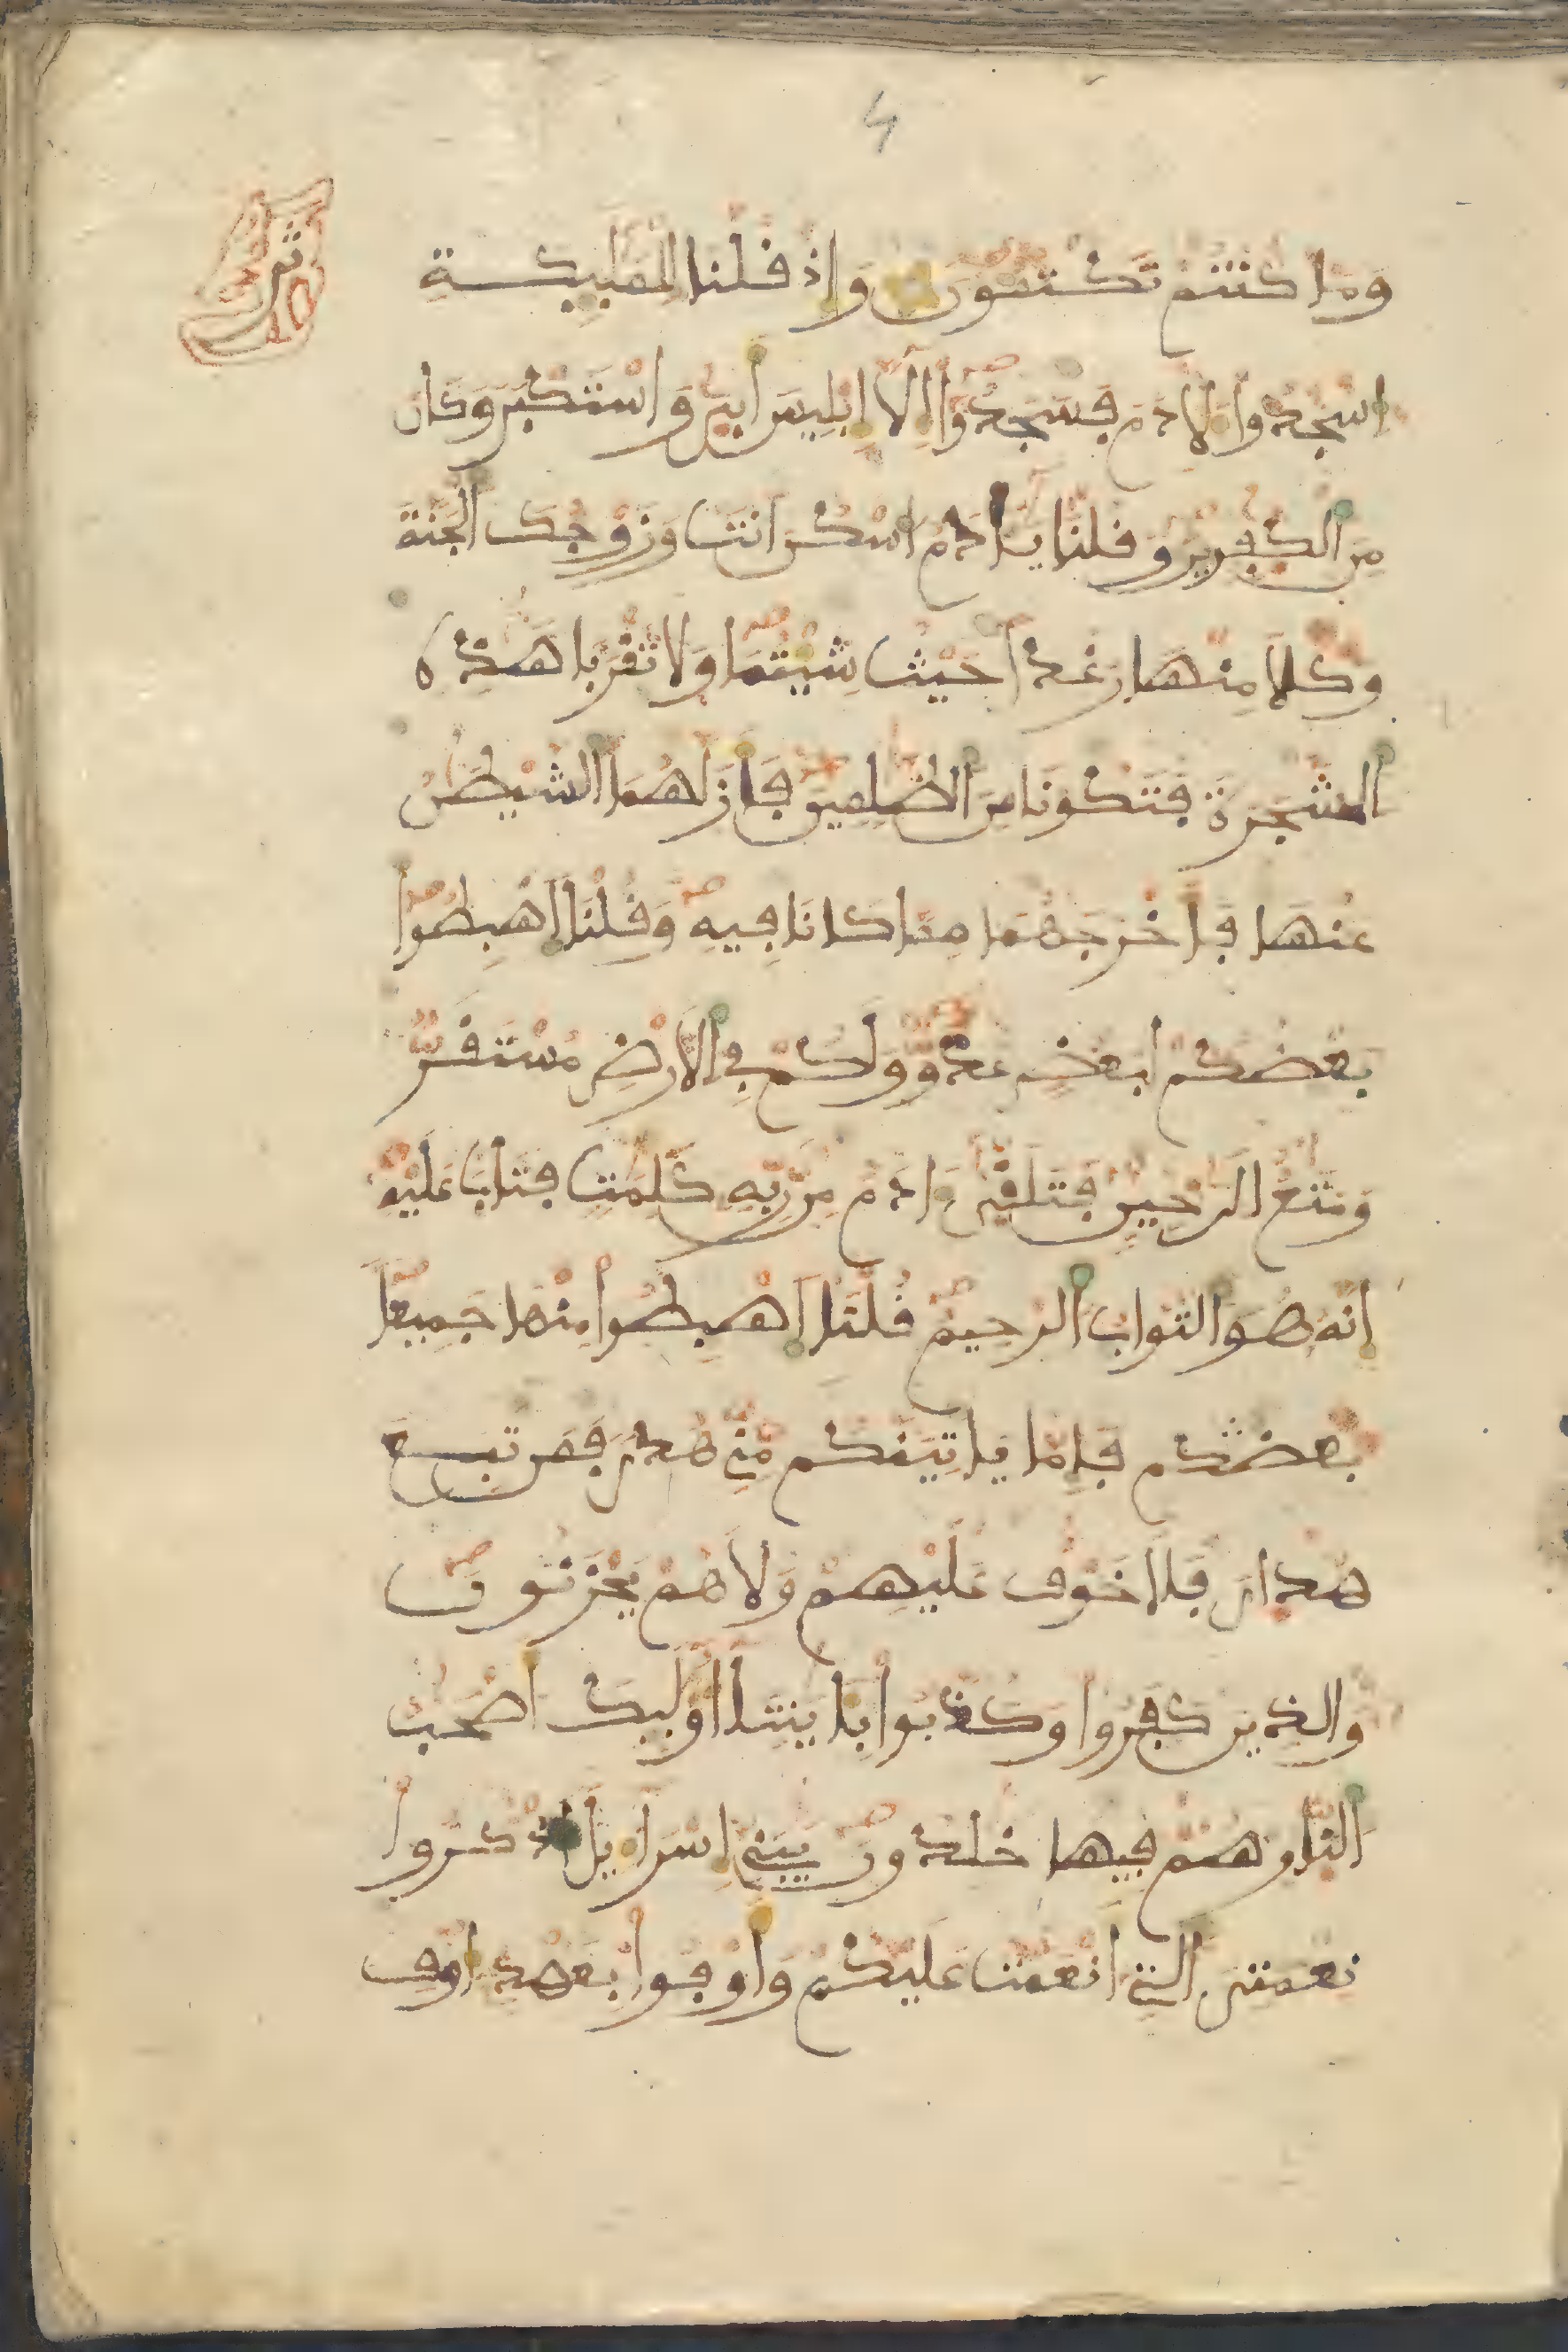 4
ثمن
وَمَا كُنتُمْ تَكْتُمُونَ وَإِذْ فُلْنَا لِلْمَلَٰٓئِكَةِ
اِ۟سْجُدُوا۟ لِأَدَمَ فَسَجَدُوٓا۟ إِلَّآ إِبْلِيسَ أَبِىٰ وَاسْتَكْبَرَ وَكَانَ
مِنَ ٱلْكَٰفِرِينَ وَفُلْنَا يَٰٓـَٔادَمُ ٱسْكُنْ أَنتَ وَزَوْجُكَ ٱلْجَنَّةَ
وَكُلَا مِنْهَا رَغَدًا حَيْثُ شِيْتُمَا وَلَا تَفْرَبَا هَٰذِهِ
ٱلشَّجَرَةَ فَتَكُونَا مِنَ ٱلظَّٰلِمِينَ فَأَزَلَّهُمَا ٱلشَّيْطَٰنُ
عَنْهَا فَأَخْرَجَهُمَا مِمَّا كَانَا فِيهِ وَفُلْنَا ٱهْبِطُوا۟
بَعْضُكُمْ لِبَعْضٍ عَدُوٌّ وَلَكُمْ فِي ٱلْأَرْضِ مُسْتَفَرٌّ
وَمَتَٰعٌ اِلَىٰ حِينٍ فَتَلَفِّىٰٓ ءَادَمُ مِن رَّبِّهِ كَلِمَٰتٍ فَتَابَ عَلَيْهِ
إِنَّهُ هُوَ ٱلتَّوَّابُ ٱلرَّحِيمُ فُلْنَا ٱهْبِطُوا۟ مِنْهَا جَمِيعًا
بعضكم فَإِمَّا يَاتِيَنَّكُم مِّنِّے هُدًى فَمَن تَبِعَ
هُدَايَ فَلَا خَوْفٌ عَلَيْهِمْ وَلَا هُمْ يَحْزَنُونَ
وَالَّذِينَ كَفَرُوا۟ وَكَذَّبُوا۟ بِـَٔايَٰتِنَآ أُو۟لَٰٓئِكَ أَصْحَٰبُ
ٱلنَّارِ هُمْ فِيهَا خَٰلِدُونَ يَٰبَنِےٓ إِسْرَآءِيلَ ٱذْكُرُوا۟
نِعْمَتِىَ ٱلَّتِےٓ أَنْعَمْتُ عَلَيْكُمْ وَأَوْفُوا۟ بِعَهْدِےٓ أُوفِ